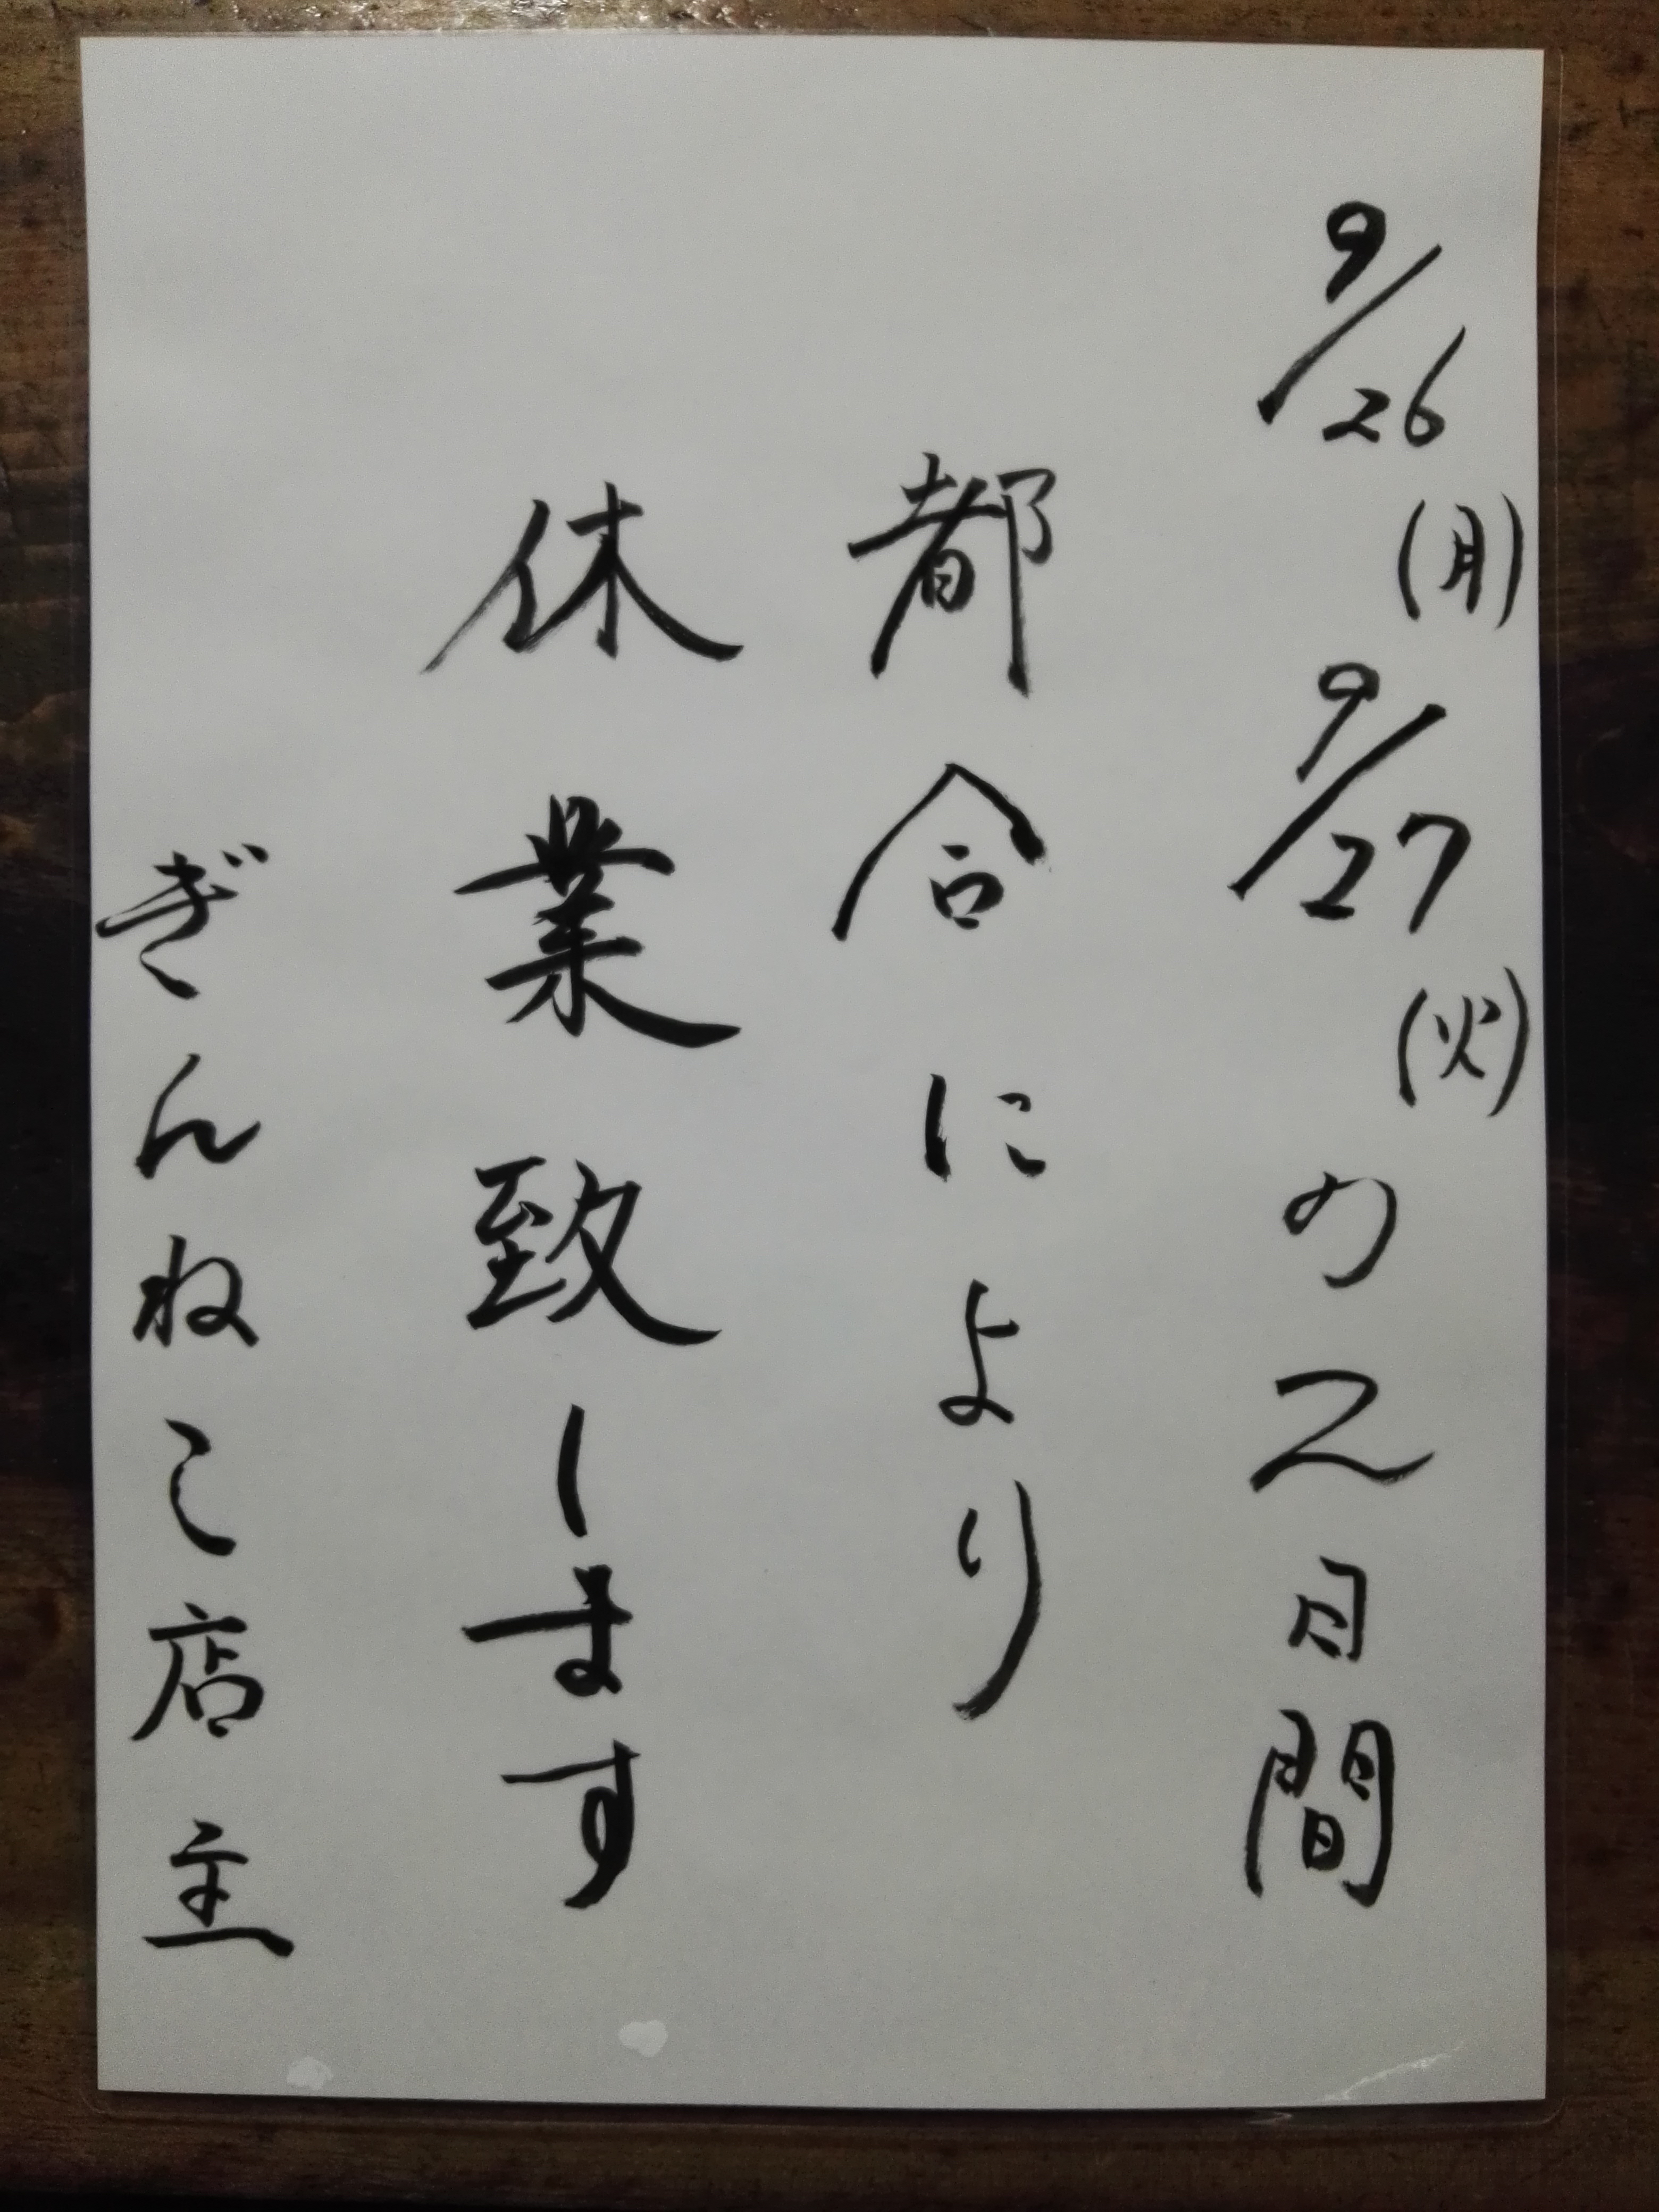 9/26(月)9/27(火)の2日間
都合により
休業致します
ぎんねこ店主